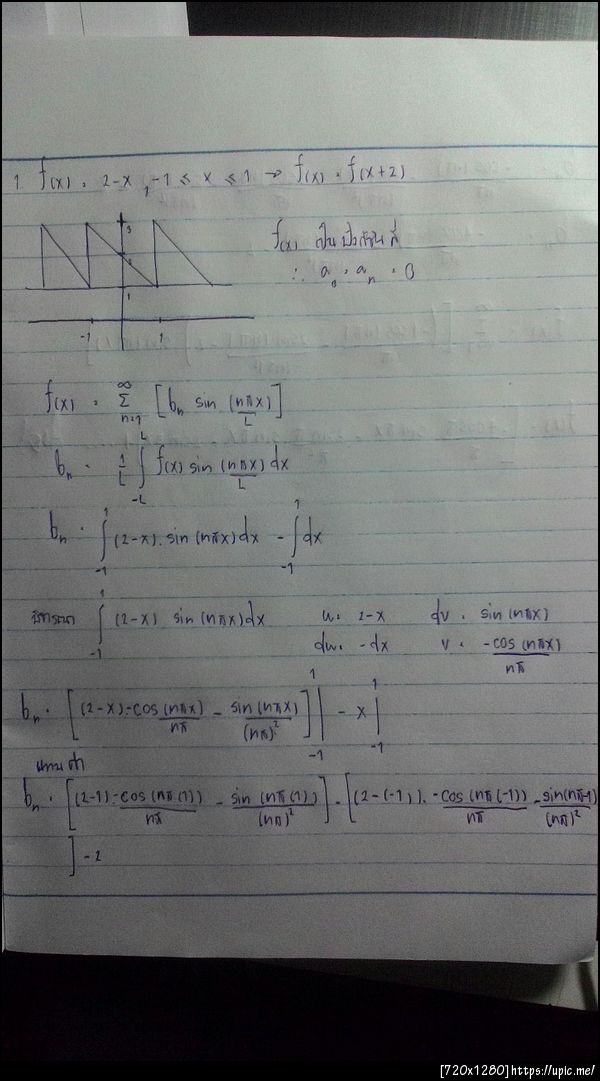 1 f(x) = 2-x , -1 ≤ x ≤ 1 → f(x) = f(x+2)
3
2
1
-1 1
f(x) เป็นฟังก์ชันคี่
∴ a₀ = aₙ = 0
f(x) = ∞ Σ n=1 [bₙ sin (nπx)/L]
bₙ = 1/L ∫ L -L f(x) sin (nπx)/L dx
bₙ = ∫ 1 -1 (2-x) . sin (nπx) dx - ∫ 1 -1 dx
พิจารณา ∫ 1 -1 (2-x) sin (nπx) dx u = 2-x dv = sin (nπx)
du = -dx v = -cos (nπx)/nπ
bₙ = [(2-x) -cos (nπx)/nπ - sin (nπx)/(nπ)²] | 1 -1 - x | 1 -1
แทนค่า
bₙ = [(2-1) -cos (nπ(1))/nπ - sin (nπ(1))/(nπ)²] - [(2-(-1)) . -cos (nπ(-1))/nπ - sin(nπ-1)/(nπ)²
] - 2
[720x1280] https://upic.me/